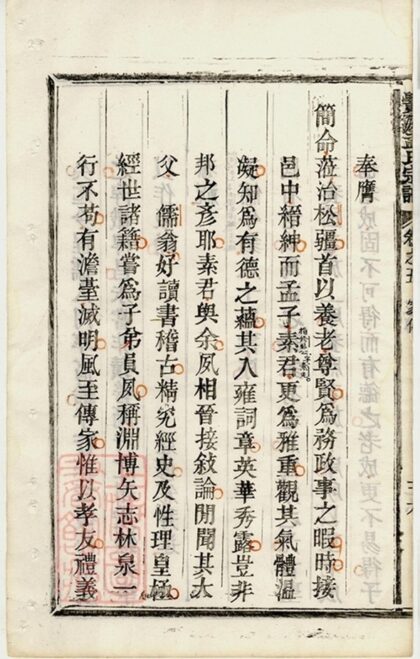 奉膺
簡命蒞治松疆首以養老尊賢為務政事之暇時接
邑中縉紳而孟子素君更為雅重觀其氣體溫
凝知為有德之蘊其入雍詞章英華秀露豈非
邦之彥耶素君與余夙相晉接敘論間聞其大
父 儒翁好讀書稽古精究經史及性理皇極
經世諸籍嘗為子弟員夙稱淵博矢志林泉一
行不苟有澹臺滅明風至傳家惟以孝友禮義